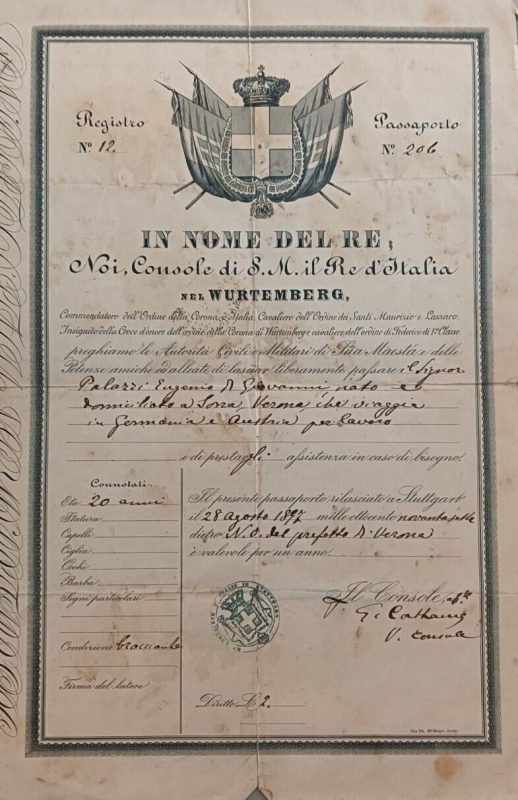 Registro
Nº 12.
Passaporto
Nº 206
IN NOME DEL RE;
Noi, Console di S. M. il Re d'Italia
NEL WURTEMBERG,
Commendatore dell'Ordine della Corona d'Italia, Cavaliere dell'Ordine dei Santi Maurizio e Lazzaro
Insignito della Croce d'onore dell'ordine della Corona di Wurtemberg e cavaliere dell'ordine di Federico di 1ª Classe
preghiamo le Autorità Civili e Militari di Sua Maestà e delle
Potenze amiche ed alleate di lasciar liberamente passare il Signor
Palazzi Eugenio di Giovanni nato e
domiciliato a Verona che viaggia
in Germania e Austria per lavoro
e di prestargli assistenza in caso di bisogno.
Connotati.
Età 20 anni
Statura
Capelli
Ciglia
Occhi
Barba
Segni particolari
Condizione bracciante
Firma del latore
Il presente passaporto rilasciato a Stuttgart
il 28 agosto 1897 mille ottocento novantasette
dietro N.O. del prefetto di Verona
è valevole per un anno.
Il Console
V. Console
Diritto L 2.